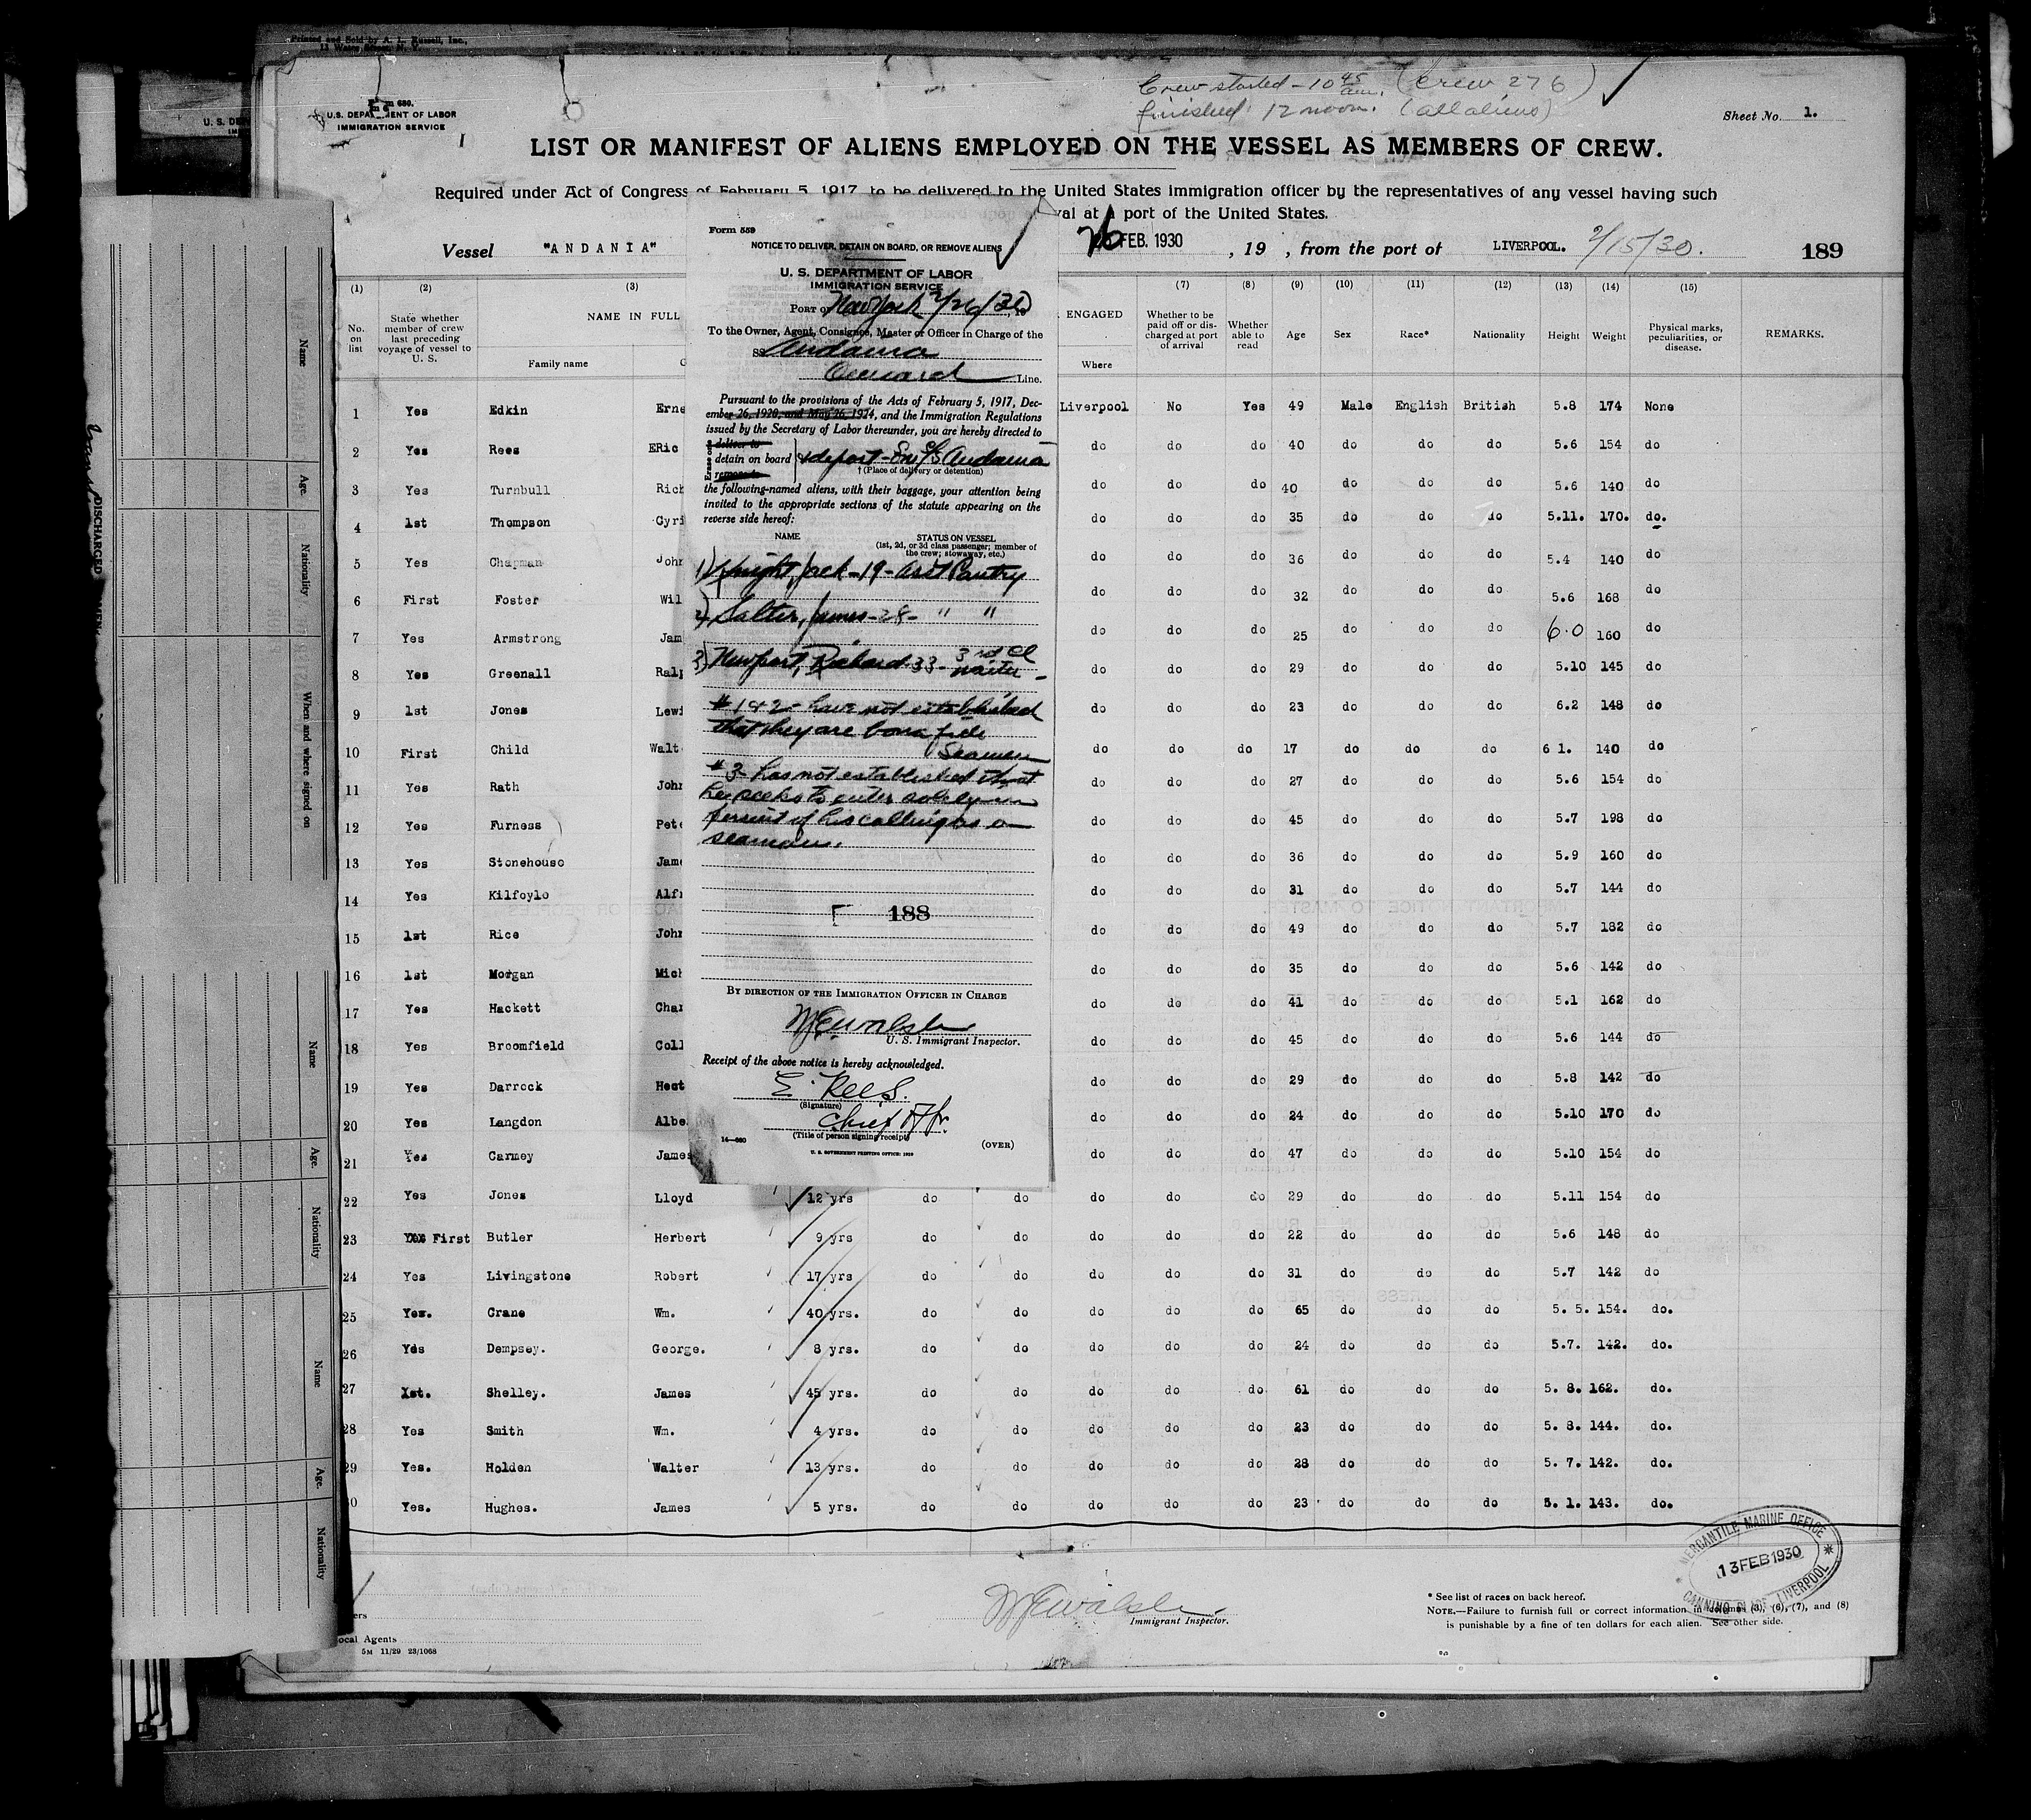 Printed and Sold by A. L. Russell, Inc.,
Crew started - 10 45 am. (Crew 276)
finished 12 noon. (all aliens)
U.S. DEPARTMENT OF LABOR
IMMIGRATION SERVICE
Sheet No. 1.
LIST OR MANIFEST OF ALIENS EMPLOYED ON THE VESSEL AS MEMBERS OF CREW.
Required under Act of Congress of February 5, 1917, to be delivered to the United States immigration officer by the representatives of any vessel having such
val at a port of the United States.
Vessel "ANDANIA"
26 FEB. 1930 , 19 , from the port of LIVERPOOL. 2/15/30. 189
(1) (2) (3) (7) (8) (9) (10) (11) (12) (13) (14) (15)
No. on list
State whether member of crew last preceding voyage of vessel to U. S.
NAME IN FULL
Family name
ENGAGED
Where
Whether to be paid off or discharged at port of arrival
Whether able to read
Age
Sex
Race*
Nationality
Height
Weight
Physical marks, peculiarities, or disease.
REMARKS.
1 Yes Edkin Erne Liverpool No Yes 49 Male English British 5.8 174 None
2 Yes Rees ERic do do do 40 do do do 5.6 154 do
3 Yes Turnbull Rich do do do 40 do do do 5.6 140 do
4 1st Thompson Cyri do do do 35 do do do 5.11. 170. do.
5 Yes Chapman John do do do 36 do do do 5.4 140 do
6 First Foster Wil do do do 32 do do do 5.6 168 do
7 Yes Armstrong Jam do do do 25 do do do 6.0 160 do
8 Yes Greenall Ralp do do do 29 do do do 5.10 145 do
9 1st Jones Lewi do do do 23 do do do 6.2 148 do
10 First Child Walt do do do 17 do do do 6 1. 140 do
11 Yes Rath John do do do 27 do do do 5.6 154 do
12 Yes Furness Pete do do do 45 do do do 5.7 198 do
13 Yes Stonehouse Jame do do do 36 do do do 5.9 160 do
14 Yes Kilfoyle Alfr do do do 31 do do do 5.7 144 do
15 1st Rice John do do do 49 do do do 5.7 182 do
16 1st Morgan Mich do do do 35 do do do 5.6 142 do
17 Yes Hackett Char do do do 41 do do do 5.1 162 do
18 Yes Broomfield Coll do do do 45 do do do 5.6 144 do
19 Yes Darrock Hect do do do 29 do do do 5.8 142 do
20 Yes Langdon Albe do do do 24 do do do 5.10 170 do
21 Yes Carney James do do do 47 do do do 5.10 154 do
22 Yes Jones Lloyd 12 yrs do do do do do 29 do do do 5.11 154 do
23 First Butler Herbert 9 yrs do do do do do 22 do do do 5.6 148 do
24 Yes Livingstone Robert 17 yrs do do do do do 31 do do do 5.7 142 do
25 Yes. Crane Wm. 40 yrs. do do do do do 65 do do do 5. 5. 154. do.
26 Yes Dempsey. George. 8 yrs. do do do do do 24 do do do 5.7. 142. do.
27 1st. Shelley. James 45 yrs. do do do do do 61 do do do 5. 8. 162. do.
28 Yes Smith Wm. 4 yrs. do do do do do 23 do do do 5. 8. 144. do.
29 Yes. Holden Walter 13 yrs. do do do do do 28 do do do 5. 7. 142. do.
30 Yes. Hughes. James 5 yrs. do do do do do 23 do do do 5. 1. 143. do.
Form 559
NOTICE TO DELIVER, DETAIN ON BOARD, OR REMOVE ALIENS
U. S. DEPARTMENT OF LABOR
IMMIGRATION SERVICE
PORT OF New York 2/26/30
To the Owner, Agent, Consignee, Master or Officer in Charge of the
SS Andania
Cunard Line.
Pursuant to the provisions of the Acts of February 5, 1917, Dec-
ember 26, 1920, and May 26, 1924, and the Immigration Regulations
issued by the Secretary of Labor thereunder, you are hereby directed to
deliver to
detain on board & deport - S/S Andania
remove to
† (Place of delivery or detention)
the following-named aliens, with their baggage, your attention being
invited to the appropriate sections of the statute appearing on the
reverse side hereof:
NAME STATUS ON VESSEL
(1st, 2d, or 3d class passenger; member of
the crew; stowaway, etc.)
1) Knight, Jack - 19 - Asst Pantry
2) Salter, James - 28 - " "
3) Newport, Richard - 33 - 3rd Cl
waiter -
# 1 & 2 - have not established
that they are bona fide
Seamen
# 3 has not established that
he seeks to enter solely in
pursuit of his calling as a
seaman.
188
BY DIRECTION OF THE IMMIGRATION OFFICER IN CHARGE
U. S. Immigrant Inspector.
Receipt of the above notice is hereby acknowledged.
E. Rees.
(Signature)
Chief Ofr.
(Title of person signing receipt)
14—680 (OVER)
U. S. GOVERNMENT PRINTING OFFICE: 1929
Name
Age.
Nationality
When and where signed on
DISCHARGED
Name
Age.
Nationality
Name
Age.
Nationality
Immigrant Inspector.
Local Agents
5M 11/29 23/1068
* See list of races on back hereof.
NOTE.—Failure to furnish full or correct information in columns (3), (6), (7), and (8)
is punishable by a fine of ten dollars for each alien. See other side.
MERCANTILE MARINE OFFICE
13 FEB 1930
CANNING PLACE, LIVERPOOL